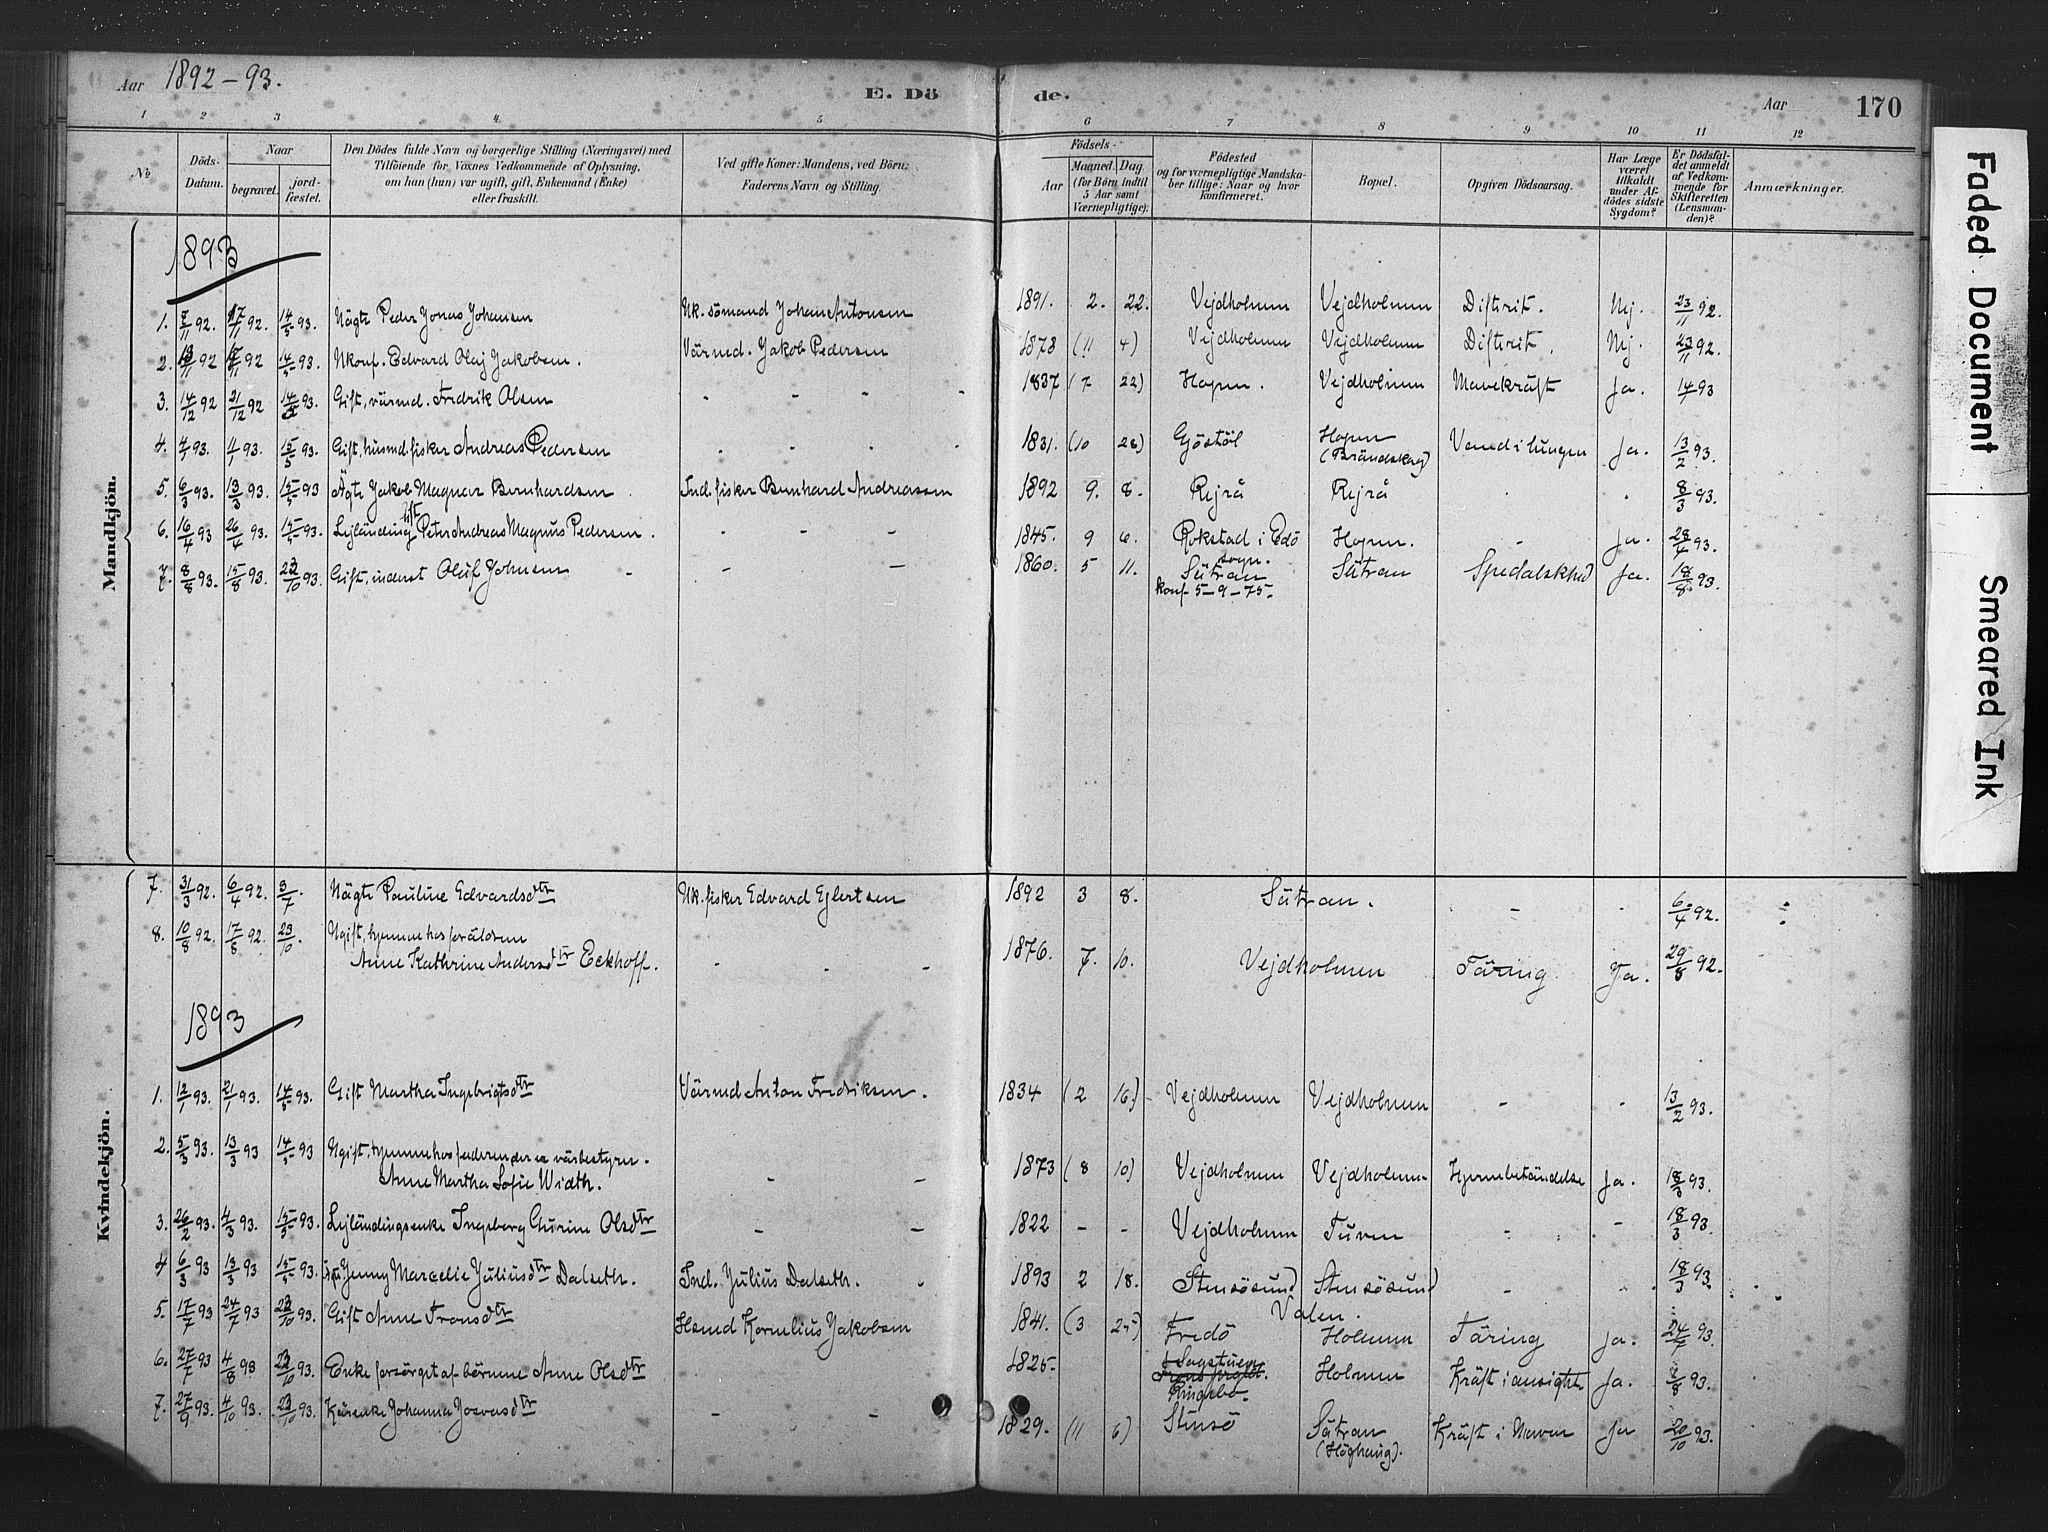 Aar 1892-93.
E. Dö de.
Aar
170
1 2 3 4 5 6 7 8 9 10 11 12
No
Döds-Datum.
Naar
begravet.
jord-fæstet.
Den Dödes fulde Navn og borgerlige Stilling (Næringsvei) med
Tilföiende for Voxnes Vedkommende af Oplysning,
om han (hun) var ugift, gift, Enkemand (Enke)
eller fraskilt.
Ved gifte Koner: Mandens, ved Börn:
Faderens Navn og Stilling.
Födsels-
Aar
Maaned. Dag
(for Börn indtil
5 Aar samt
Værnepligtige).
Födested
og for værnepligtige Mandska-
ber tillige: Naar og hvor
konfirmeret.
Bopæl.
Opgiven Dödsaarsag.
Har Læge
været
tilkaldt
under Af-
dödes sidste
Sygdom?
Er Dödsfal-
det anmeldt
af Vedkom-
mende for
Skifteretten
(Lensman-
den)?
Anmærkninger.
Mandkjön.
1893
1. 7/11 92. 17/11 92. 14/5 93. Uägte Peder Jonas Johansen Uk. sömand Johan Antonsen 1891. 2. 22. Vejdholmen Vejdholmen Difterit. Nej. 23/11 92.
2. 13/11 92 17/11 92 14/5 93. Ukonf. Edvard Olaj Jakobsen. Värmd. Jakob Pedersen 1878 (11 4) Vejdholmen Vejdholmen Difterit. Nej. 23/11 92.
3. 14/12 92 21/12 92 14/5 93. Gift, värmd. Fredrik Olsen - - - - 1837 (7 22) Hopen. Vejdholmen Mavekräft Ja. 14/1 93
4. 4/1 93. 4/1 93. 15/5 93. Gift, husmd. fisker Andreas Pedersen - - - 1831. (10 28) Gjöstöl Hopen (Brändskag) Vand i lungen Ja. 13/2 93.
5. 6/3 93. 13/3 93. 15/5 93 Ägte Jakob Magnar Bernhardsen Ind. fisker Bernhard Andreassen 1892 9. 8. Rejrå Rejrå . . 8/3 93.
6. 16/4 93 26/4 93. 15/5 93. Lejländing gift Peter Andreas Magnus Pedersen. - - - 1845. 9 6. Rokstad i Edö sogn. Hopen. - Ja. 28/4 93.
7. 8/8 93. 15/8 93. 23/10 93. Gift, inderst Oluf Johnsen - - - 1860. 5 11. Sätran konf. 5-9-75. Sätran Spedalskhed Ja. 18/8 93.
Kvindekjön.
7. 31/3 92. 6/4 92. 3/7. Uägte Pauline Edvardsdtr Uk. fisker Edvard Ejlertsen 1892 3 8. Sätran. - - 6/4 92.
8. 10/8 92. 17/8 92. 23/10. Ugift, hjemme hos foräldrene
Anne Kathrine Andersdtr Eckhoff. - - - 1876. 7. 10. Vejdholmen Täring Ja. 29/8 92.
1893
1. 12/1 93. 21/1 93. 14/5 93. Gift Martha Ingebrigtsdtr Värmd Anton Fredriksen. 1834 (2 16.) Vejdholmen Vejdholmen - - 13/2 93.
2. 5/3 93. 13/3 93 14/5 93 Ugift, hjemme hos faderen, der er värbestyrer.
Anne Martha Sofie Width. - - 1873 (8 10) Vejdholmen Vejdholmen Hjernebetändelse Ja. 18/3 93.
3. 26/2 93. 4/3 93. 15/5 93. Lejländingsenke Ingeborg Gurine Olsdtr - - 1822 - - Vejdholmen Turen - - 18/3 93.
4 6/3 93 13/3 93 15/5 93. Ägte Jenny Marcelie Juliusdtr Dalseth. Ind. Julius Dalseth. 1893 2 18. Stensösund Stensösund - . 18/3 93.
5. 17/7 93 24/7 93 23/10 93. Gift Anne Tronsdtr Hsmd Kornelius Jakobsen 1841. (3 25) Fredö Valen. Holmen Täring Ja. 24/7 93.
6. 27/7 93 4/8 93 23/10 93. Enke forsörget af börnene Anne Olsdtr 1825. Ringebo. Holmen Kräft i ansigtet Ja. 8/8 93.
7. 27/9 93. 4/10 93. 23/10 93. Kårenke Johanna Josvasdtr - - 1829. (11 6) Stensö Sätran (Höghaug). Kräft i Maven Ja 20/10 93.
Faded Document
Smeared Ink